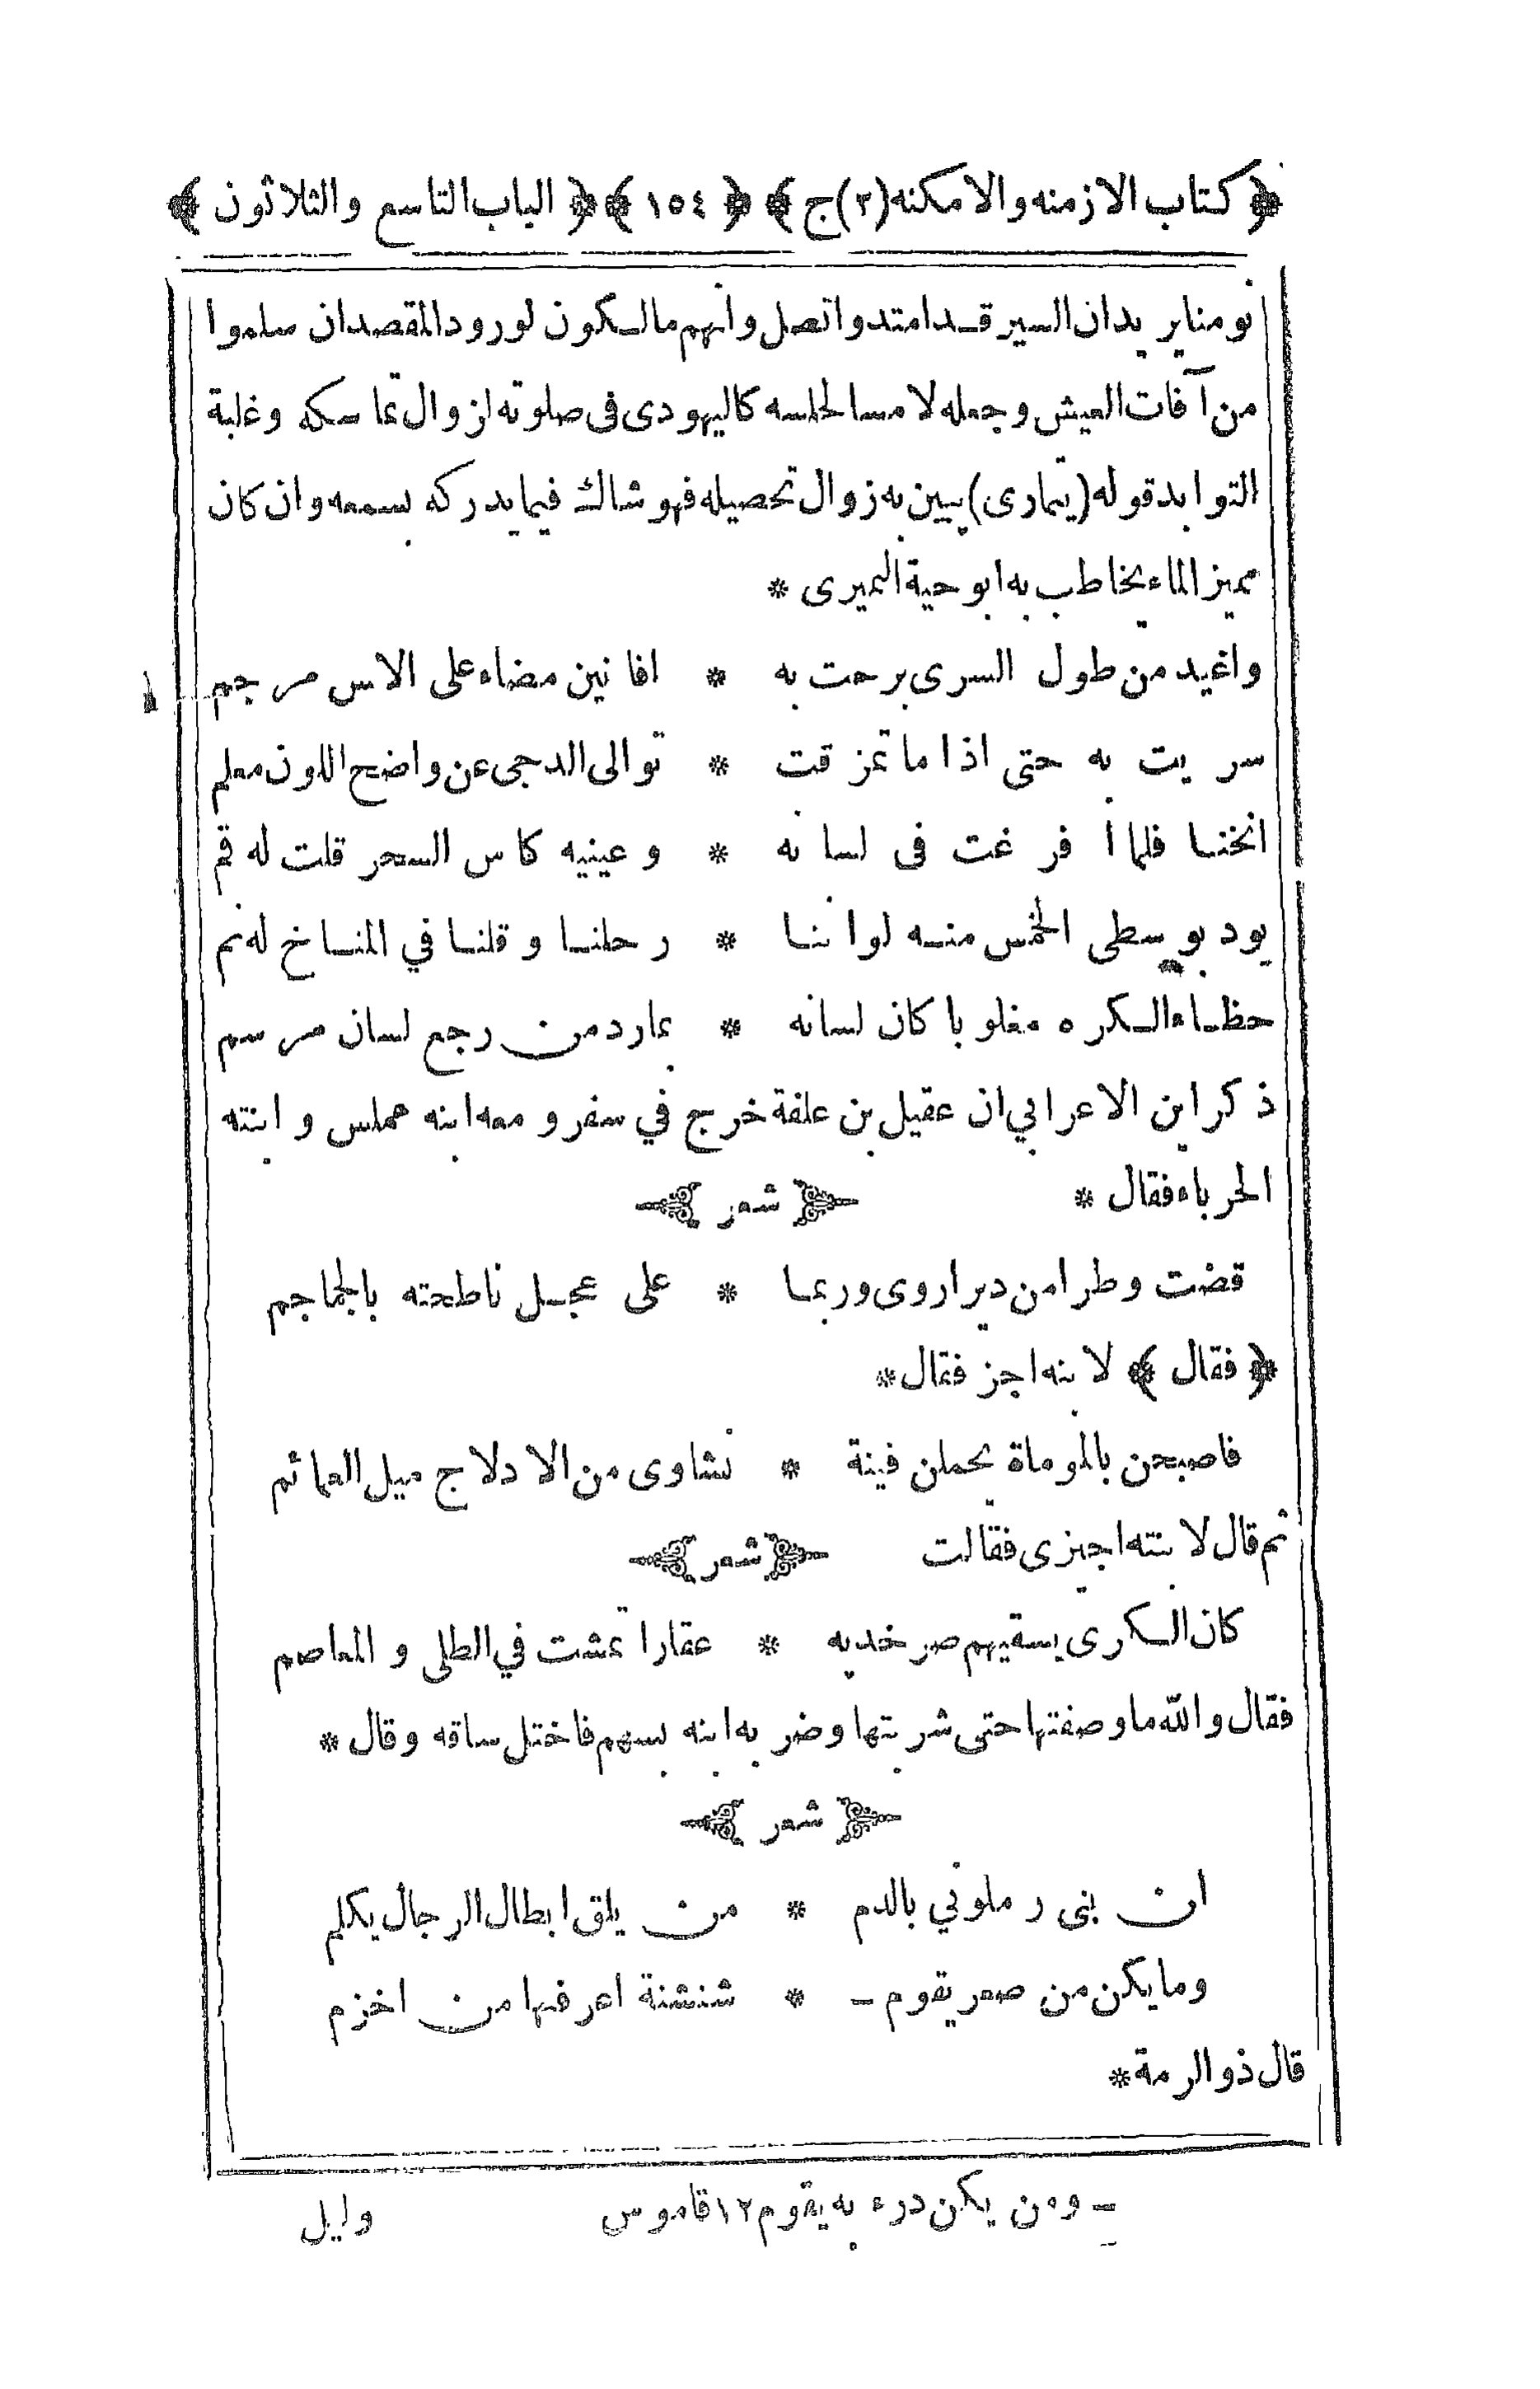 ﴿ كتاب الازمنه والامكنه (٢) ج ﴾ ﴿ ١٥٤ ﴾ ﴿ الباب التاسع والثلاثون ﴾
نومنا يريد ان السير قد امتد واتصل وانهم مالكون لورود المقصدان سلموا
من آفات العيش وجعله لامسا لحلسه كاليهودى فى صلوته لزوال تماسكه وغلبة
التوا بد قوله (يتمارى) يبين به زوال تحصيله فهو شاك فيما يدركه بسمعه وان كان
مميز الماء يخاطب به ابو حية النميرى *
واغيد من طول السرى برحت به * افانين مضاء على الاس مرجم
سريت به حتى اذا ما تمزقت * توالى الدجى عن واضح اللون معلم
انخنا فلما أفرغت فى لسانه * وعينيه كاس السحر قلت له قم
يود بوسطى الخمس منه لو اننا * رحلنا وقلنا في المناخ له نم
حظاء الكره مغلوبا كان لسانه * بمارد من رجع لسان مرسم
ذكر ابن الاعرابي ان عقيل بن علفة خرج في سفر ومعه ابنه عملس وابنته
الحرباء فقال * ﴿ شعر ﴾
قضت وطرا من دير اروى وربما * على عجل ناطحته بالجماجم
﴿ فقال ﴾ لابنه اجز فقال *
فاصبحن بالموماة يحملن فينة * نشاوى من الادلاج ميل العمائم
ثم قال لابنته اجيزى فقالت ﴿ شعر ﴾
كان الكرى يسقيهم صرخديه * عقارا تمشت في الطلى والمعاصم
فقال والله ما وصفتها حتى شربتها وضر به ابنه بسهم فاختل ساقه وقال *
﴿ شعر ﴾
ان بنى رملوني بالدم * من يلق ابطال الرجال يكلم
وما يكن من صعر يقوم ـ * شنشنة اعرفها من اخزم
قال ذو الرمة *
ـ ومن يكن درء به يقوم ١٢ قاموس
وليل